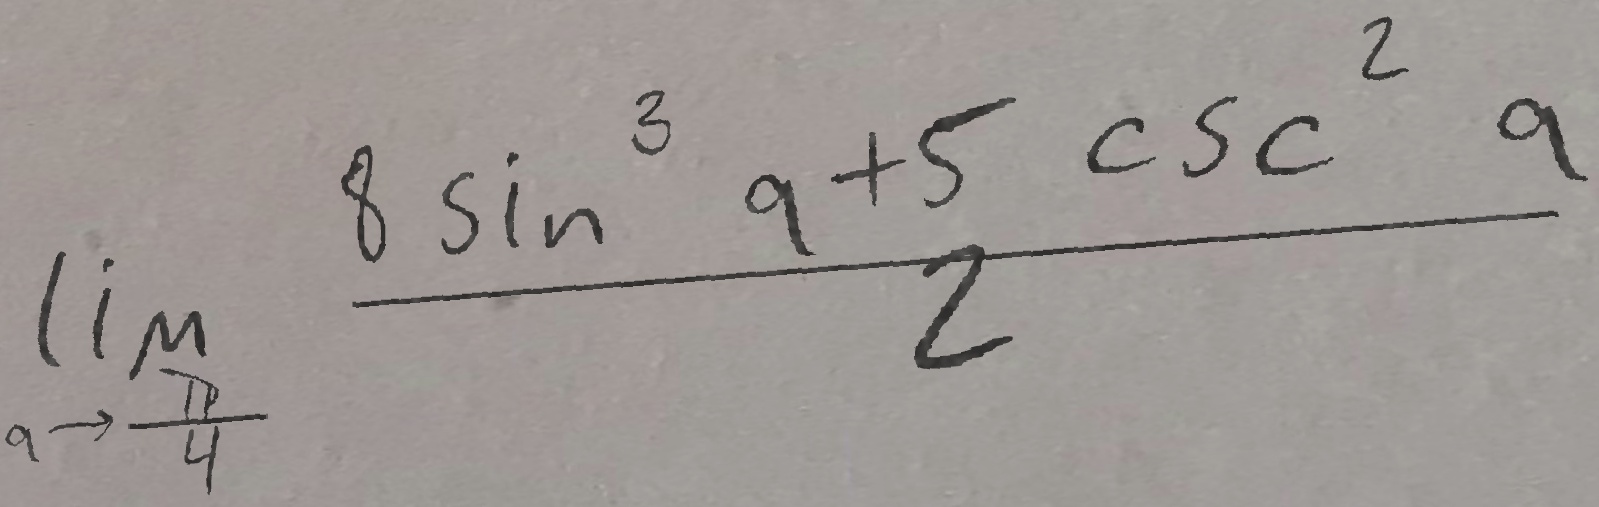 \lim_{a \to \frac{\pi}{4}} \frac{8 \sin^3 a + 5 \csc^2 a}{2}